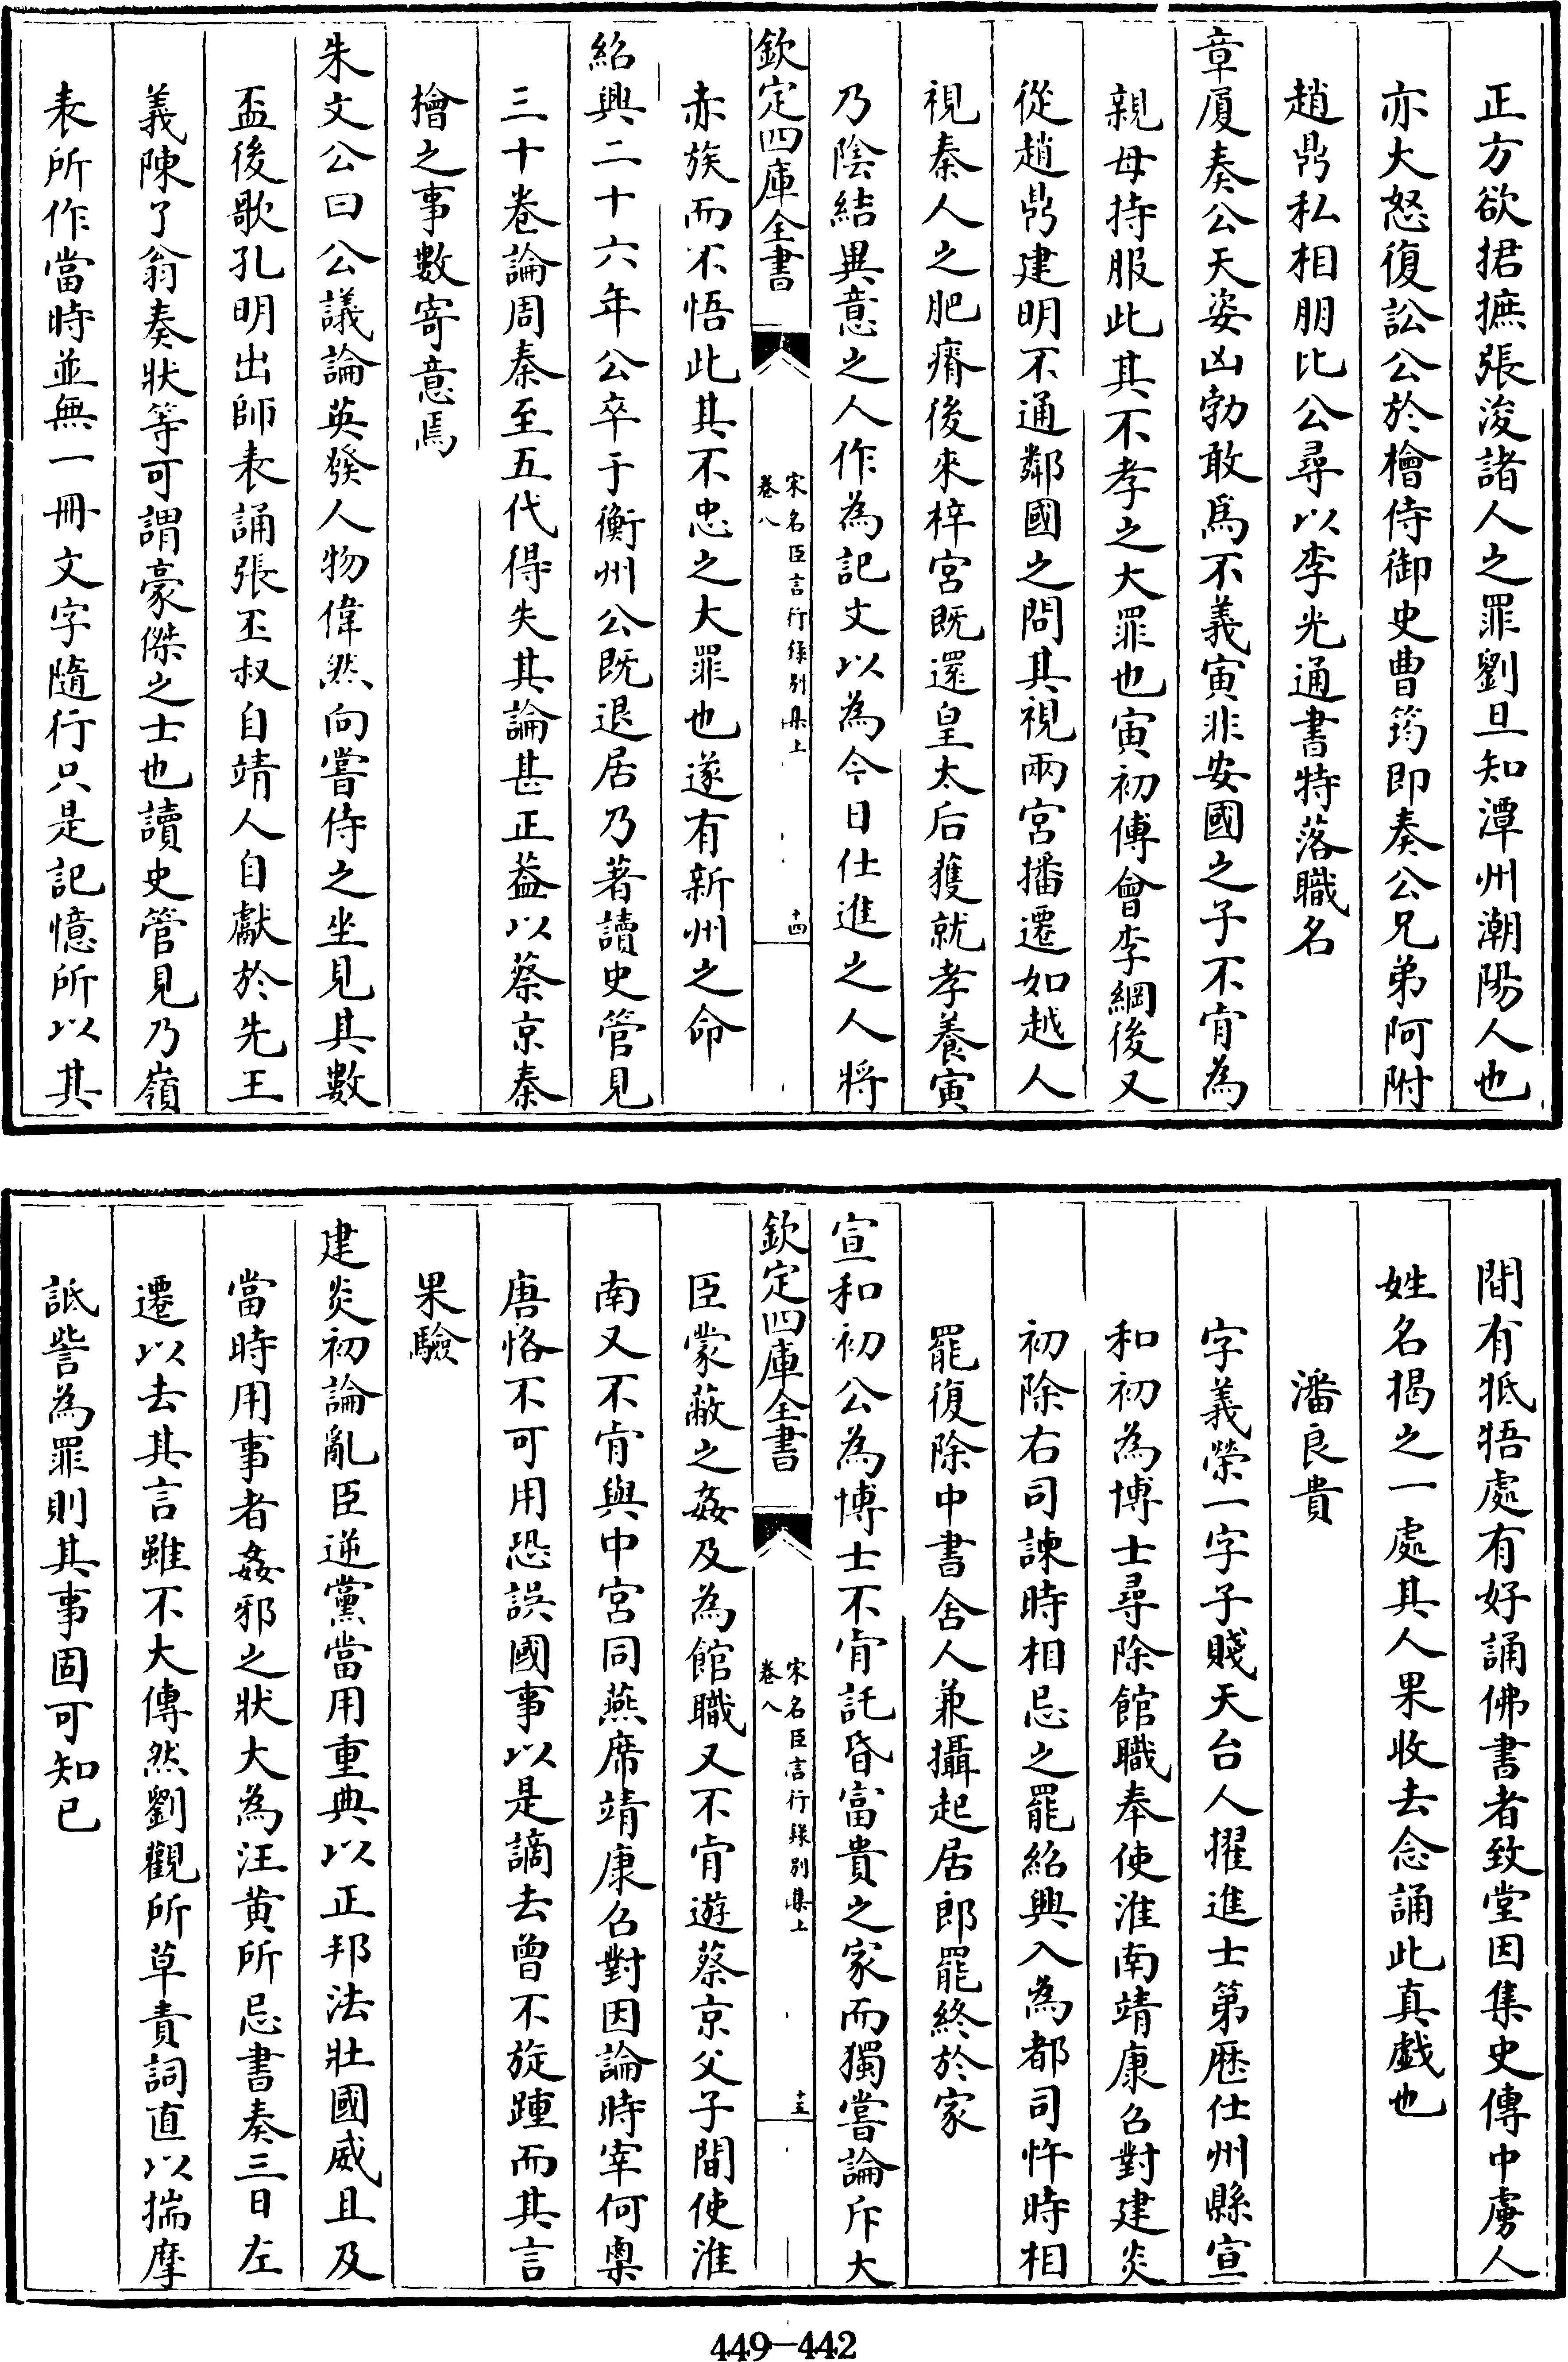 正方欲捃摭張浚諸人之罪劉旦知潭州潮陽人也
亦大怒復訟公於檜侍御史曹筠即奏公兄弟阿附
趙鼎私相朋比公尋以李光通書特落職名
章厦奏公天姿凶勃敢為不義寅非安國之子不肯為
親母持服此其不孝之大罪也寅初傅會李綱後又
從趙鼎建明不通鄰國之問其視兩宮播遷如越人
視秦人之肥瘠後來梓宮既還皇太后獲就孝養寅
乃陰結異意之人作為記文以為今日仕進之人將
欽定四庫全書
宋名臣言行録別集上
卷八
十四
赤族而不悟此其不忠之大罪也遂有新州之命
紹興二十六年公卒于衡州公既退居乃著讀史管見
三十卷論周秦至五代得失其論甚正葢以蔡京秦
檜之事數寄意焉
朱文公曰公議論英發人物偉然向嘗侍之坐見其數
盃後歌孔明出師表誦張丕叔自靖人自獻於先王
義陳了翁奏狀等可謂豪傑之士也讀史管見乃嶺
表所作當時並無一冊文字隨行只是記憶所以其
間有牴牾處有好誦佛書者致堂因集史傳中虜人
姓名揭之一處其人果收去念誦此真戲也
潘良貴
字義榮一字子賤天台人擢進士第歷仕州縣宣
和初為博士尋除館職奉使淮南靖康召對建炎
初除右司諫時相忌之罷紹興入為都司忤時相
罷復除中書舍人兼攝起居郎罷終於家
宣和初公為博士不肯託昏富貴之家而獨嘗論斥大
欽定四庫全書
宋名臣言行録別集上
卷八
十五
臣蒙蔽之姦及為館職又不肯遊蔡京父子間使淮
南又不肯與中宮同燕席靖康召對因論時宰何㮚
唐恪不可用恐誤國事以是謫去曾不旋踵而其言
果驗
建炎初論亂臣逆黨當用重典以正邦法壯國威且及
當時用事者姦邪之狀大為汪黄所忌書奏三日左
遷以去其言雖不大傳然劉觀所草責詞直以揣摩
詆訾為罪則其事固可知已
449-442